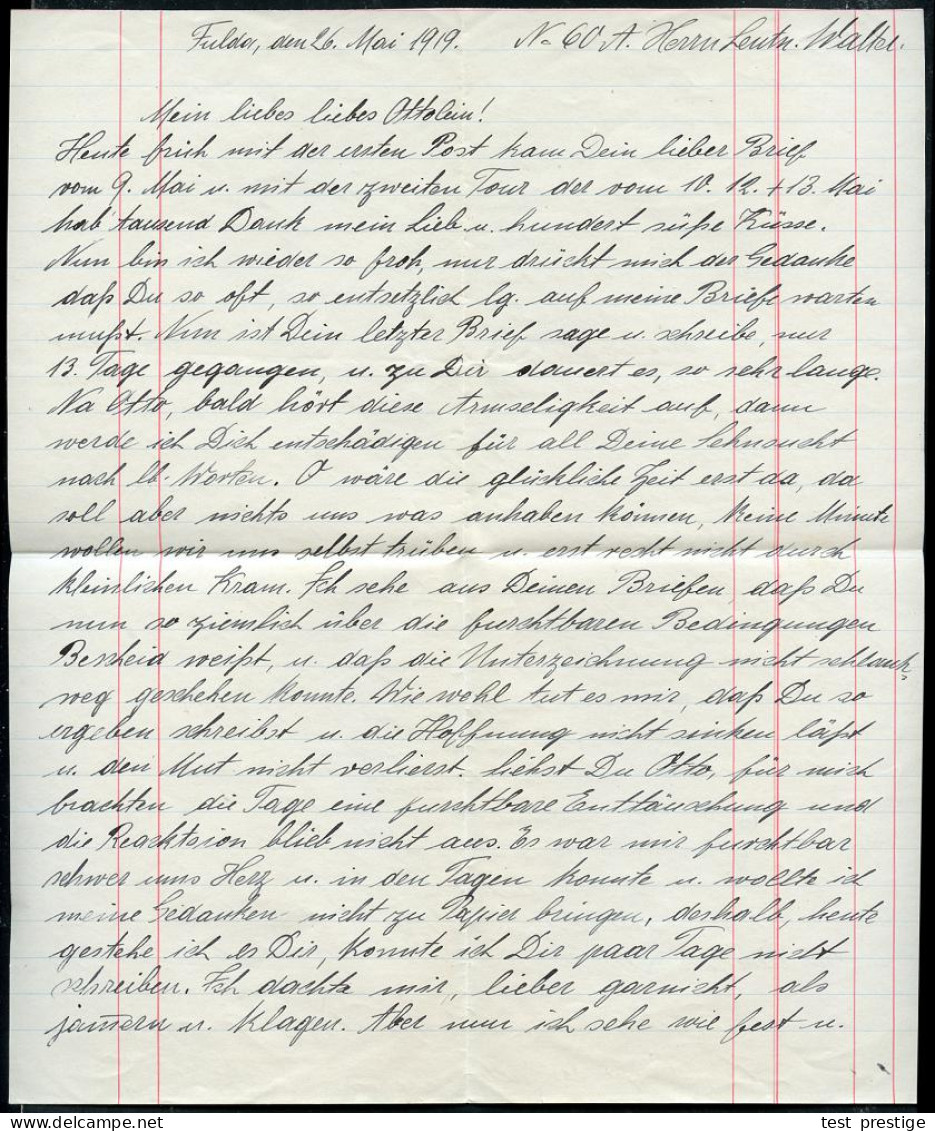 Fulda, den 26. Mai 1919. No 60 A. Herrn Leutn. Walter.
Mein liebes liebes Ottolein!
Heute früh mit der ersten Post kam Dein lieber Brief
vom 9. Mai u. mit der zweiten Tour der vom 10. 12. + 13. Mai
hab' tausend Dank mein Lieb u. hundert süße Küsse.
Nun bin ich wieder so froh, nur drückt mich der Gedanke
daß Du so oft, so entsetzlich lg. auf meine Briefe warten
mußt. Nun ist Dein letzter Brief sage u. schreibe, nur
13. Tage gegangen, u. zu Dir dauert es, so sehr lange.
Na Otto, bald hört diese Armseligkeit auf, dann
werde ich Dich entschädigen für all Deine Sehnsucht
nach lb. Worten. O wäre die glückliche Zeit erst da, da
soll aber nichts uns was anhaben können, keine Minute
wollen wir uns selbst trüben u. erst recht nicht durch
kleinlichen Kram. Ich sehe aus Deinen Briefen, daß Du
nun so ziemlich über die furchtbaren Bedingungen
Bescheid weißt, u. daß die Unterzeichnung nicht schlank
weg geschehen konnte. Wie wohl tut es mir, daß Du so
ergeben schreibst u. die Hoffnung nicht sinken läßt
u. den Mut nicht verlierst. Siehst Du Otto, für mich
brachten die Tage eine furchtbare Enttäuschung und
die Reacktsion blieb nicht aus. Es war mir furchtbar
schwer ums Herz u. in den Tagen konnte u. wollte ich
meine Gedanken nicht zu Papier bringen, deshalb, heute
gestehe ich es Dir, konnte ich Dir paar Tage nicht
schreiben. Ich dachte mir, lieber garnicht, als
jam̄ern u. klagen. Aber nun ich sehe wie fest u.
test prestige